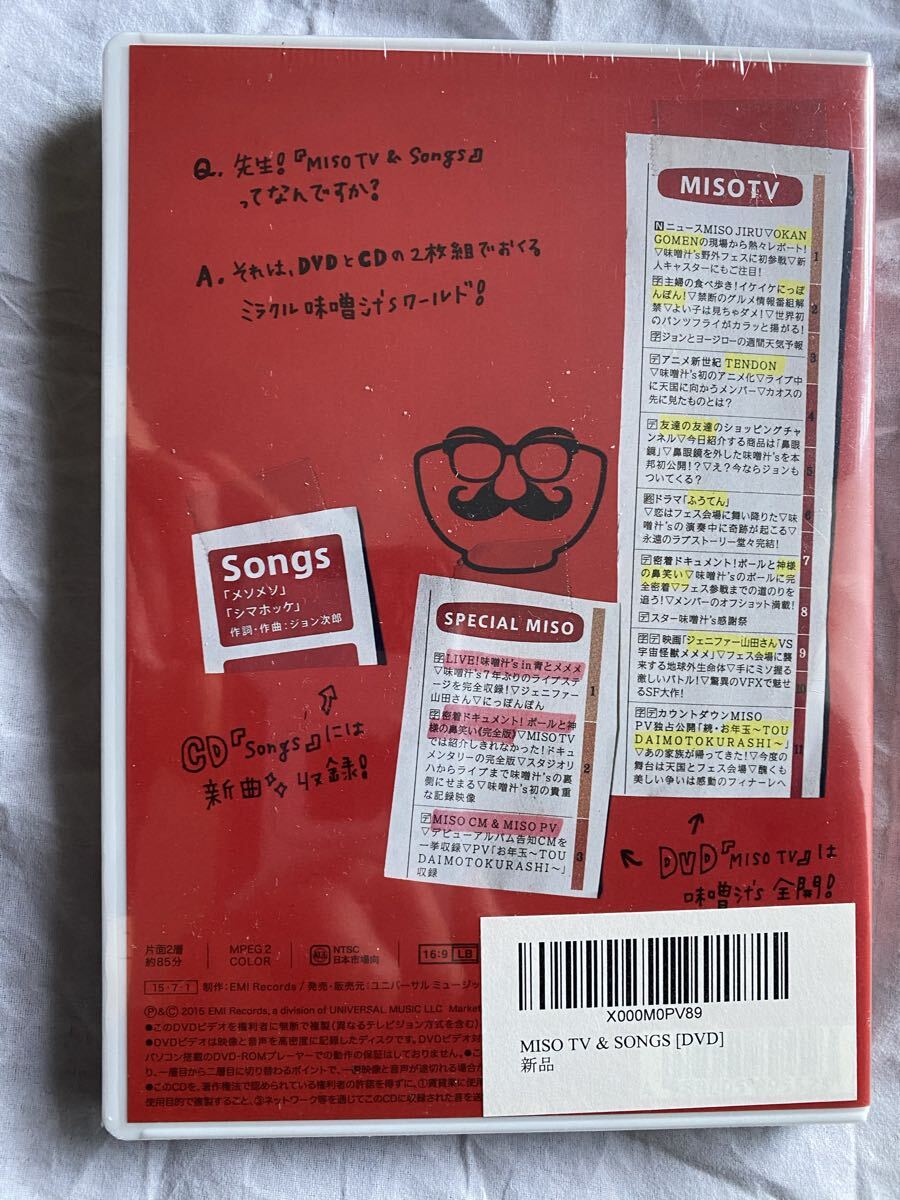 Q. 先生!『MISO TV & Songs』
ってなんですか?
A. それは、DVDとCDの2枚組でおくる
ミラクル味噌汁'sワールド!
MISOTV
NニュースMISO JIRU▽OKAN
GOMENの現場から熱々レポート!
▽味噌汁's野外フェスに初参戦▽新
人キャスターにもご注目!
字主婦の食べ歩き!イケイケにっぽ
んぽん!▽禁断のグルメ情報番組解
禁▽よい子は見ちゃダメ!▽世界初
のパンツフライがカラッと揚がる!
字ジョンとヨージローの週間天気予報
デアニメ新世紀 TENDON
▽味噌汁's初のアニメ化▽ライブ中
に天国に向かうメンバー▽カオスの
先に見たものとは?
デ友達の友達のショッピングチャ
ンネル▽今日紹介する商品は「鼻眼
鏡」▽鼻眼鏡を外した味噌汁'sを本
邦初公開!?▽え?今ならジョンも
ついてくる?
終ドラマ「ふうてん」
▽恋はフェス会場に舞い降りた▽味
噌汁'sの演奏中に奇跡が起こる▽
永遠のラブストーリー堂々完結!
デ密着ドキュメント!ポールと神様
の鼻笑い▽味噌汁'sのポールに完
全密着▽フェス参戦までの道のりを
追う!▽メンバーのオフショット満載!
デスター味噌汁's感謝祭
字デ映画「ジェニファー山田さんVS
宇宙怪獣メメメ」▽フェス会場に襲
来する地球外生命体▽手にミソ握る
激しいバトル!▽驚異のVFXで魅せ
るSF大作!
字デカウントダウンMISO
PV独占公開「続・お年玉〜TOU
DAIMOTOKURASHI〜」
▽あの家族が帰ってきた!▽今度の
舞台は天国とフェス会場▽醜くも
美しい争いは感動のフィナーレへ
1
2
3
4
5
6
7
8
9
10
11
Songs
「メソメソ」
「シマホッケ」
作詞・作曲:ジョン次郎
CD『Songs』には
新曲収録!
SPECIAL MISO
字LIVE!味噌汁's in 青とメメメ
▽味噌汁's7年ぶりのライブステ
ージを完全収録!▽ジェニファー
山田さん▽にっぽんぽん
字密着ドキュメント!ポールと神
様の鼻笑い《完全版》▽MISOTV
では紹介しきれなかった!ドキュ
メンタリーの完全版▽スタジオリ
ハからライブまで味噌汁'sの裏
側にせまる▽味噌汁's初の貴重
な記録映像
デMISO CM & MISO PV
▽デビューアルバム告知CMを
一挙収録▽PV「お年玉〜TOU
DAIMOTOKURASHI〜」
収録
1
2
3
DVD『MISO TV』は
味噌汁's 全開!
片面2層
約85分
MPEG 2
COLOR
ALL
NTSC
日本市場向
16:9 LB
15・7・1 制作:EMI Records / 発売・販売元:ユニバーサル ミュージッ
Ⓟ&Ⓒ 2015 EMI Records, a division of UNIVERSAL MUSIC LLC Market
●このDVDビデオを権利者に無断で複製(異なるテレビジョン方式を含む)
●DVDビデオは映像と音声を高密度に記録したディスクです。DVDビデオ対
パソコン搭載のDVD-ROMプレーヤーでの動作の保証はしておりません。●こ
り、一層目から二層目に切り替わるポイントで、一瞬映像と音声が途切れる場合が
●このCDを、著作権法で認められている権利者の許諾を得ずに、①賃貸業に使用
使用目的で複製すること、③ネットワーク等を通じてこのCDに収録された音を送
X000M0PV89
MISO TV & SONGS [DVD]
新品